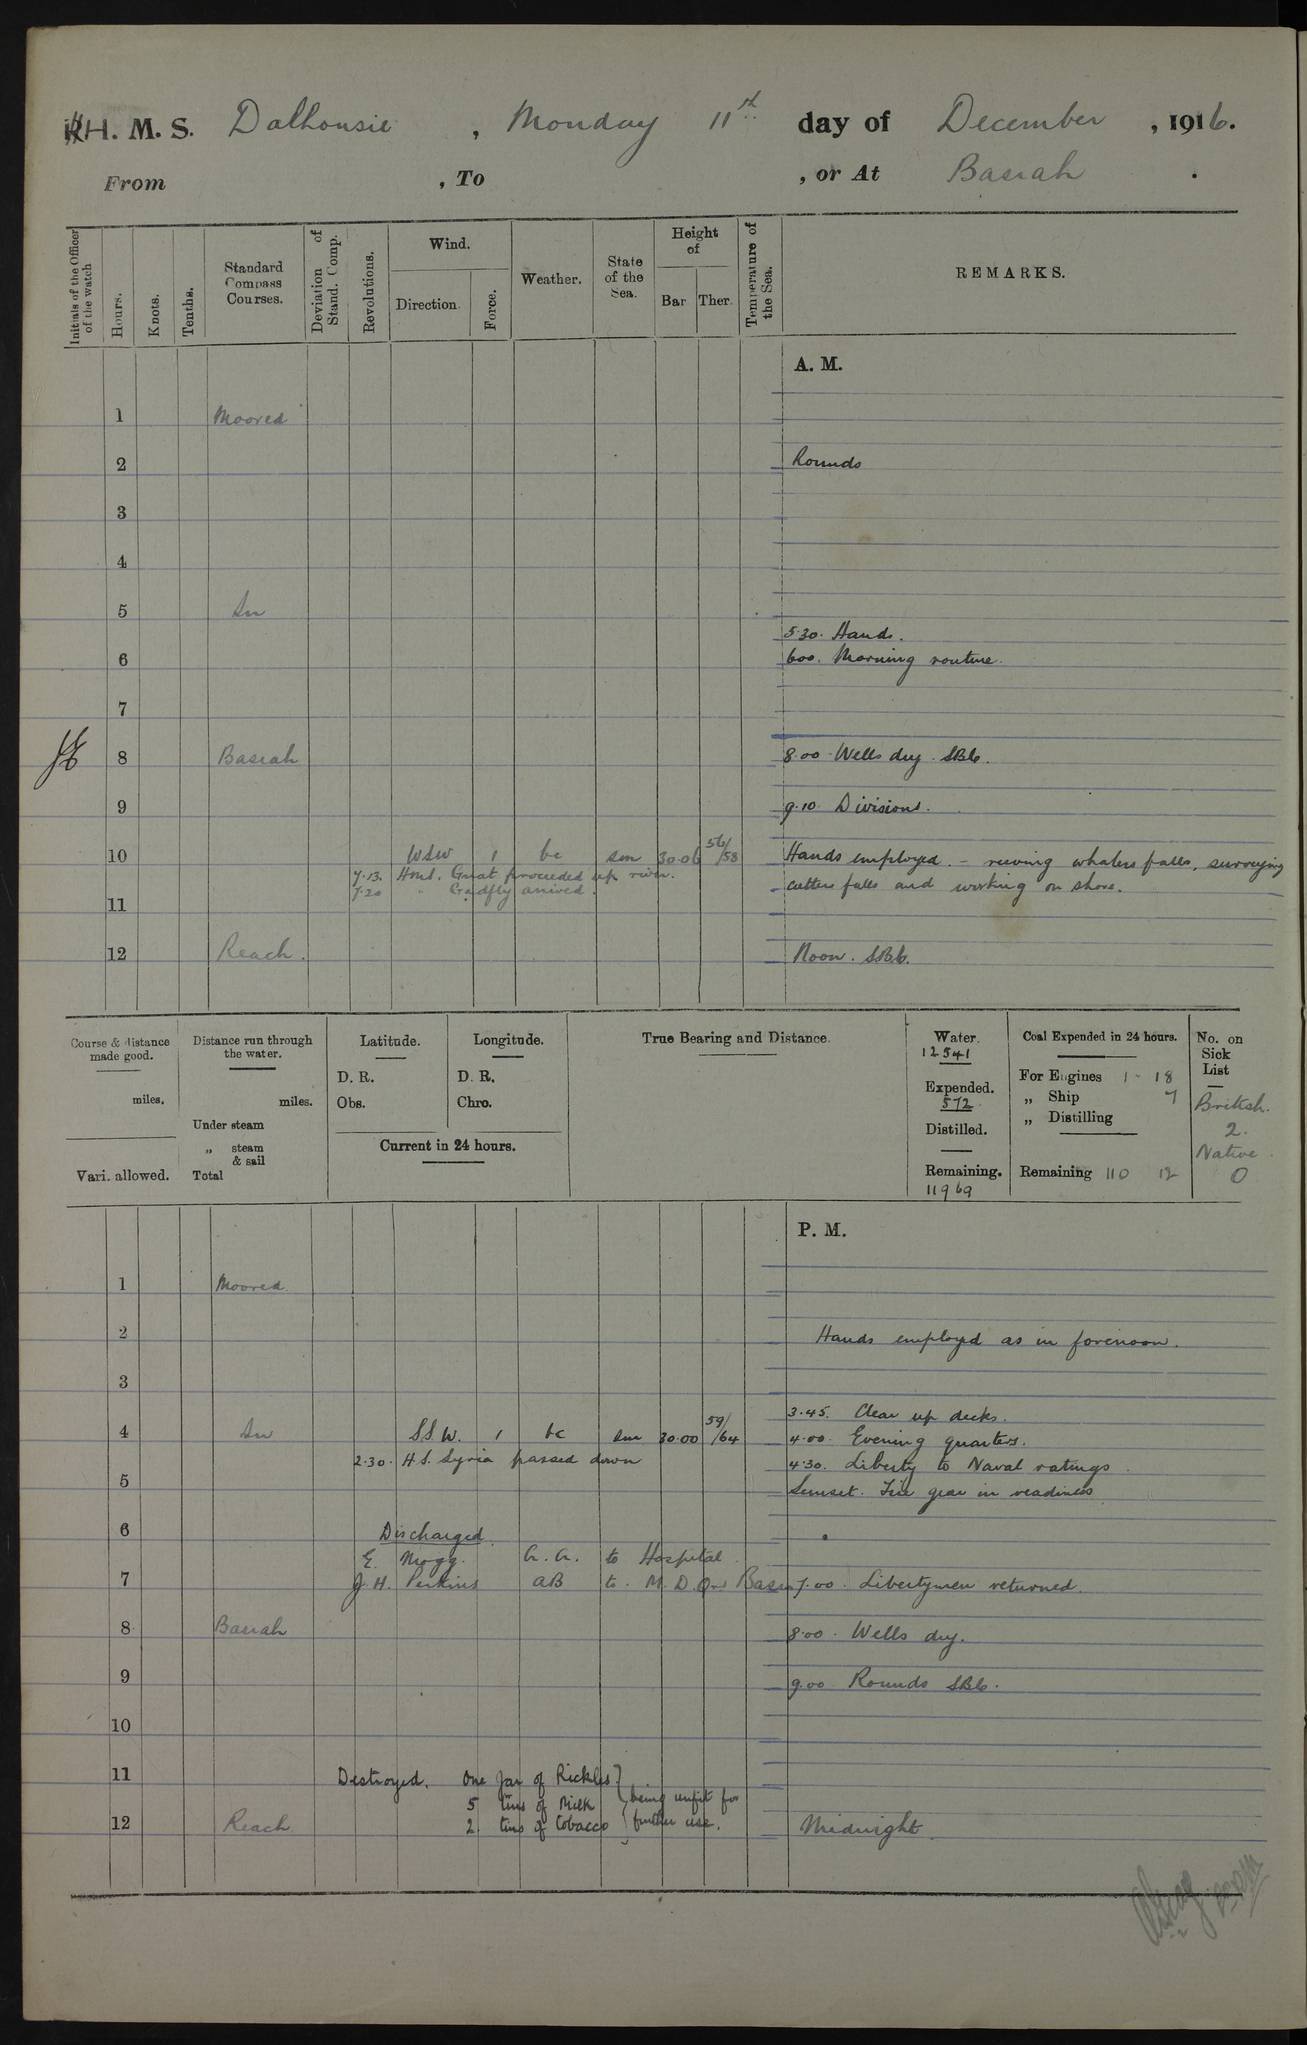 H. M. S. Dalhousie, Monday 11th day of December, 1916.
From , To , or At Basrah .
Initials of the Officer of the watch
Hours.
Knots.
Tenths.
Standard Compass Courses.
Deviation of Stand. Comp.
Revolutions.
Wind.
Direction.
Force.
Weather.
State of the Sea.
Height of
Bar
Ther.
Temperature of the Sea.
REMARKS.
A. M.
1 Moored
2 Rounds
3
4
5 In
5.30. Hands.
6 6.00. Morning routine.
7
8 Basrah 8.00 Wells dry. SBb.
9 9.10 Divisions.
10 WSW 1 bc sm 30.06 56/58 Hands employed. - reeving whalers falls, surveying
7.13. Hms. Gnat proceeded up river.
7.20 " Gadfly arrived. cutters falls and working on shore.
11
12 Reach. Noon. SBb.
Course & distance made good.
miles.
Vari. allowed.
Distance run through the water.
miles.
Under steam
" steam & sail
Total
Latitude.
D. R.
Obs.
Longitude.
D. R.
Chro.
Current in 24 hours.
True Bearing and Distance.
Water.
12541
Expended.
572
Distilled.
Remaining.
11969
Coal Expended in 24 hours.
For Engines 1 - 18
" Ship 7
" Distilling
Remaining 110 12
No. on Sick List
British.
2.
Native.
0
P. M.
1 Moored
2 Hands employed as in forenoon.
3
3.45. Clear up decks.
4 In SSW. 1 bc sm 30.00 59/64 4.00. Evening quarters.
2.30. H.S. Syria passed down 4.30. Liberty to Naval ratings
5 Sunset. Fire gear in readiness
6 Discharged
E. Mogg. to Hospital.
7 J.H. Perkins AB to. M. D. Basra 7.00. Libertymen returned.
8 Basrah 8.00. Wells dry.
9 9.00 Rounds SBb.
10
11 Destroyed. One Jar of Pickles
5 tins of Milk being unfit for
12 Reach 2 tins of tobacco further use. Midnight.